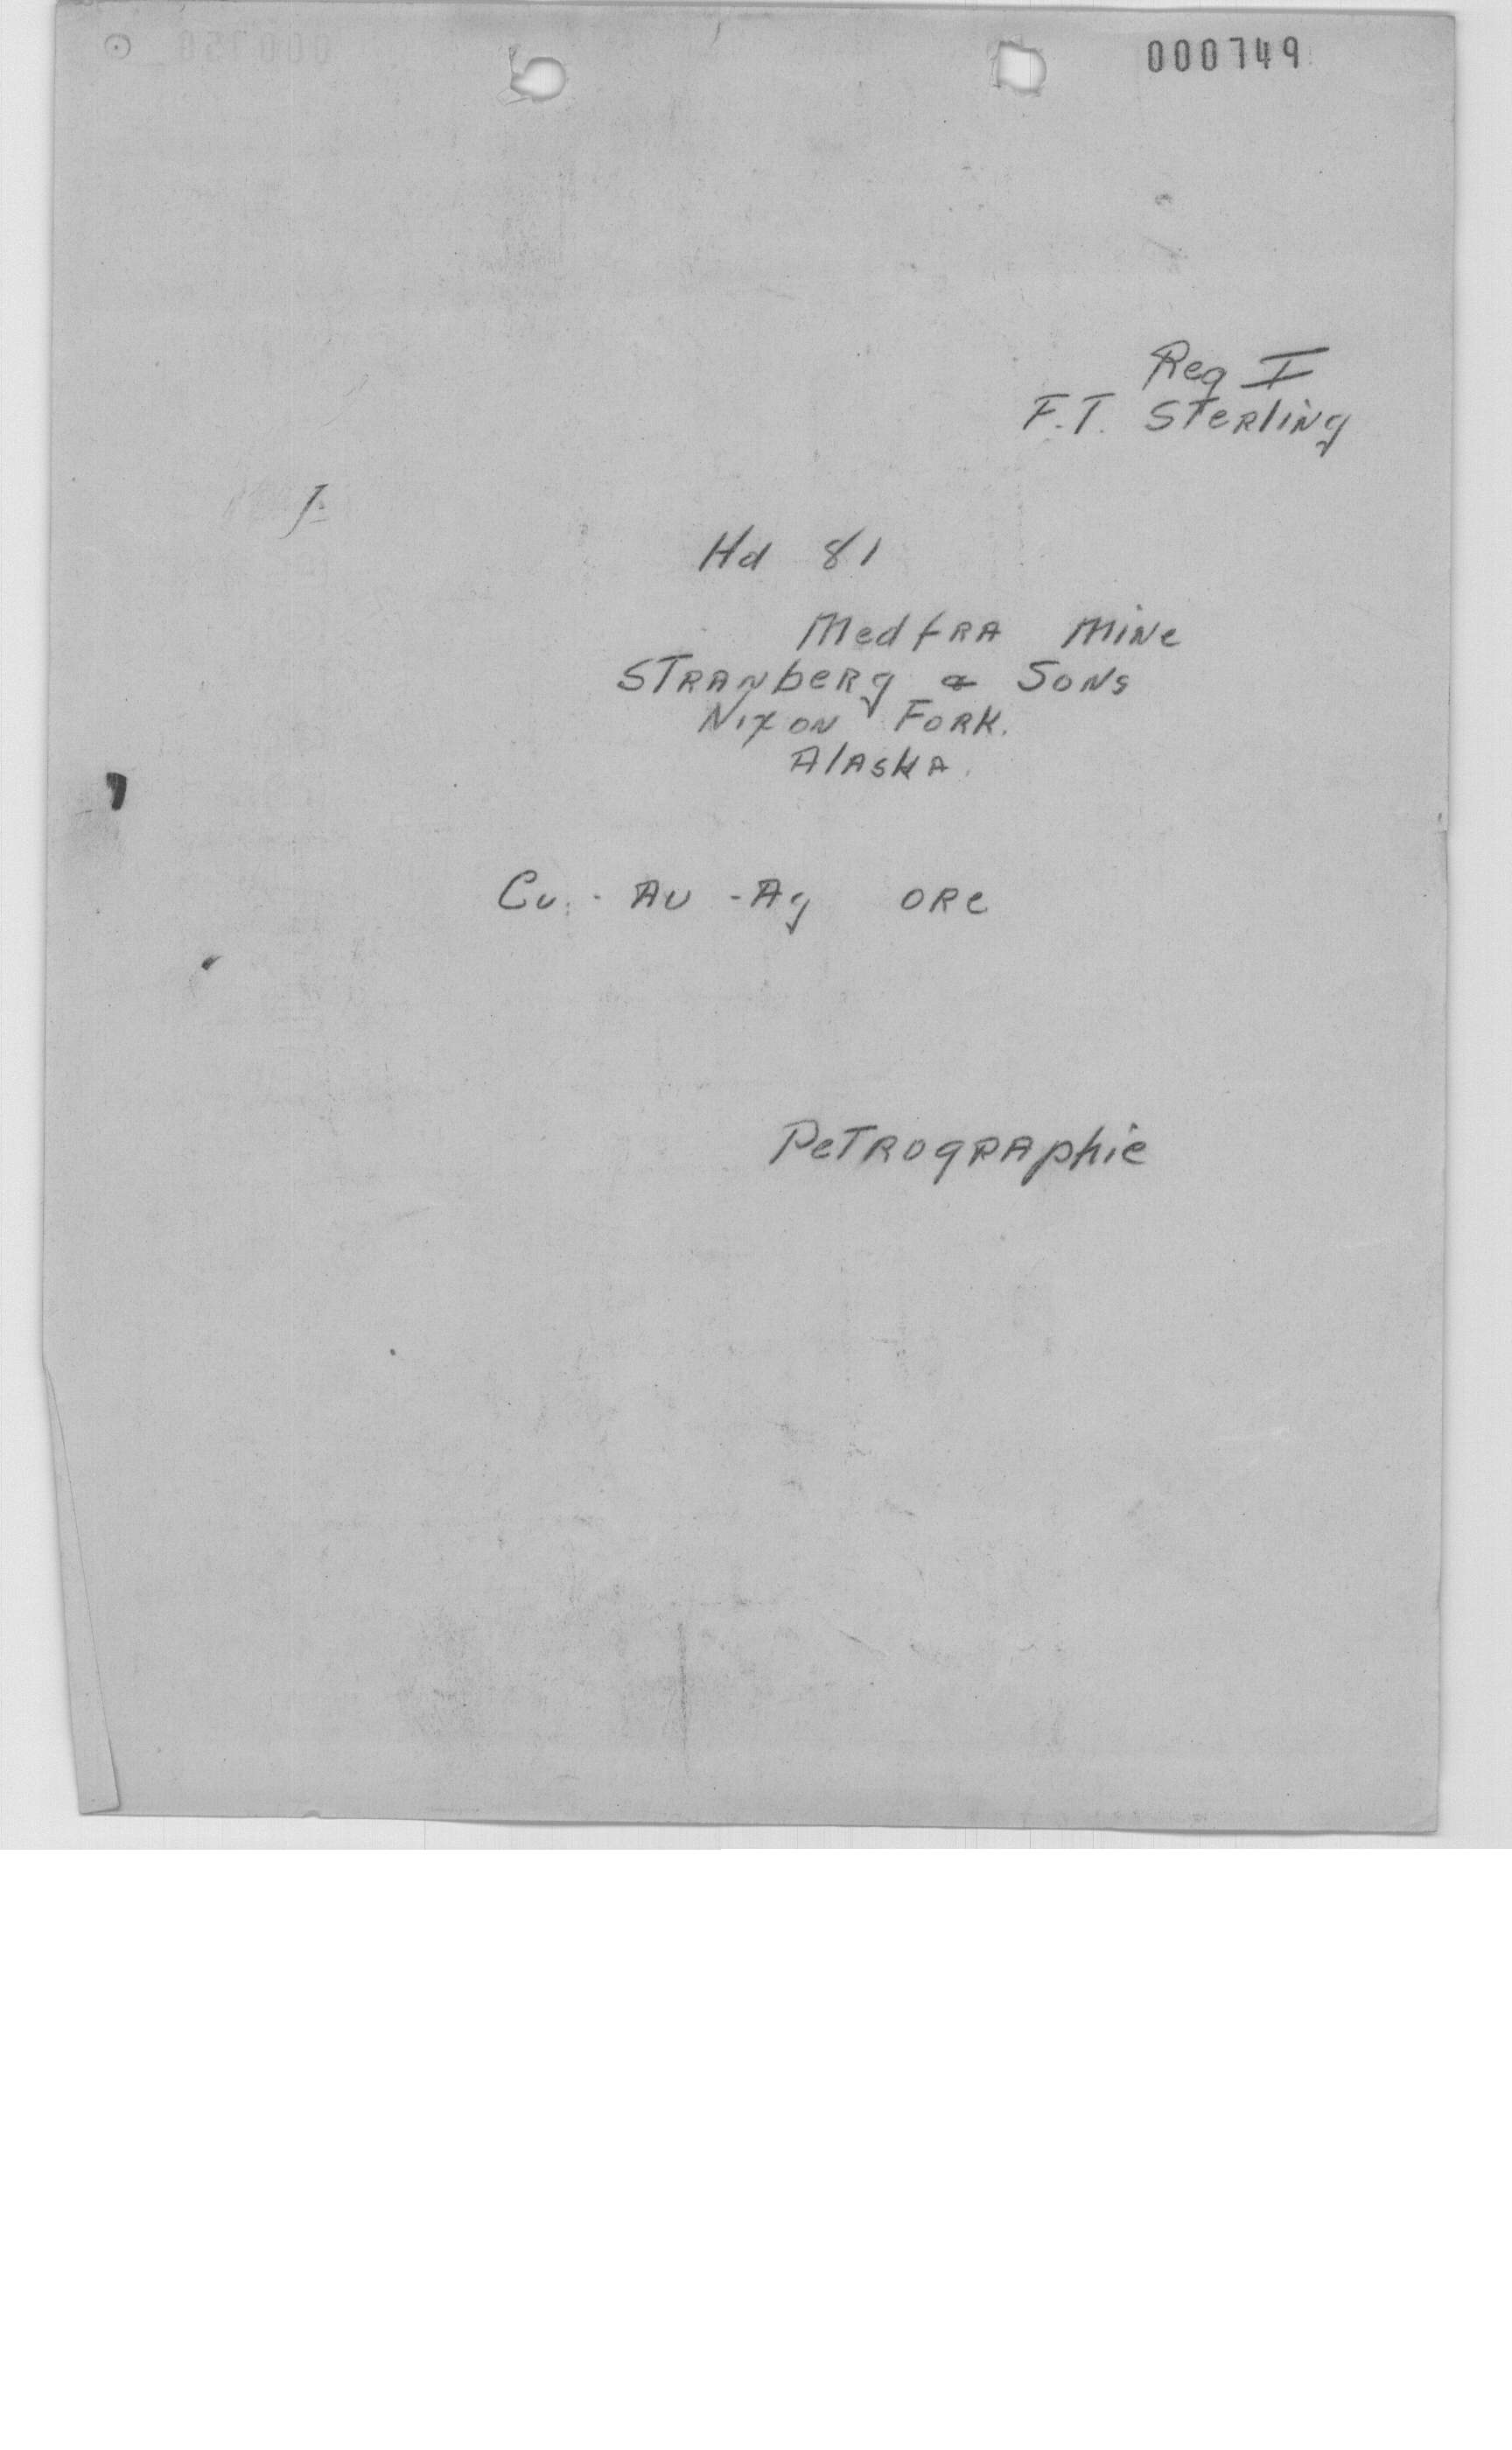 000749
Reg I
F.T. Sterling
Hd 81
Medfra Mine
Stranberg & Sons
Nixon Fork.
Alaska.
Cu. - Au - Ag ore
Petrographic